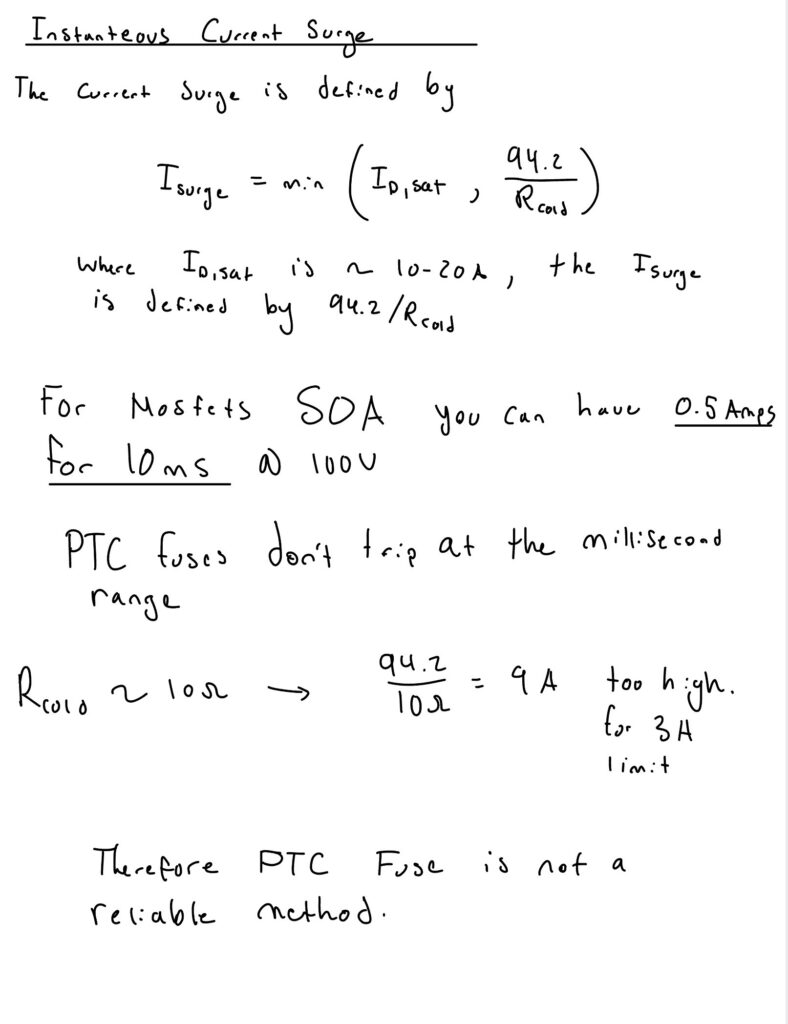 Instanteous Current Surge
The Current Surge is defined by
I_surge = min ( I_D,sat , 94.2 / R_cold )
where I_D,sat is ~ 10-20A , the I_surge
is defined by 94.2/R_cold
For Mosfets SOA you can have 0.5 Amps
for 10ms @ 100V
PTC fuses don't trip at the millisecond
range
R_cold ~ 10Ω → 94.2 / 10Ω = 9A too high.
for 3A
limit
Therefore PTC Fuse is not a
reliable method.